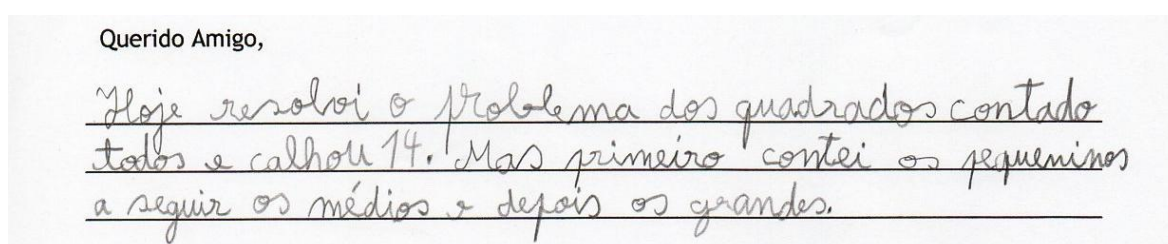 Querido Amigo,
Hoje resolvi o problema dos quadrados contado
todos e calhou 14. Mas primeiro contei os pequeninos
a seguir os médios e depois os grandes.